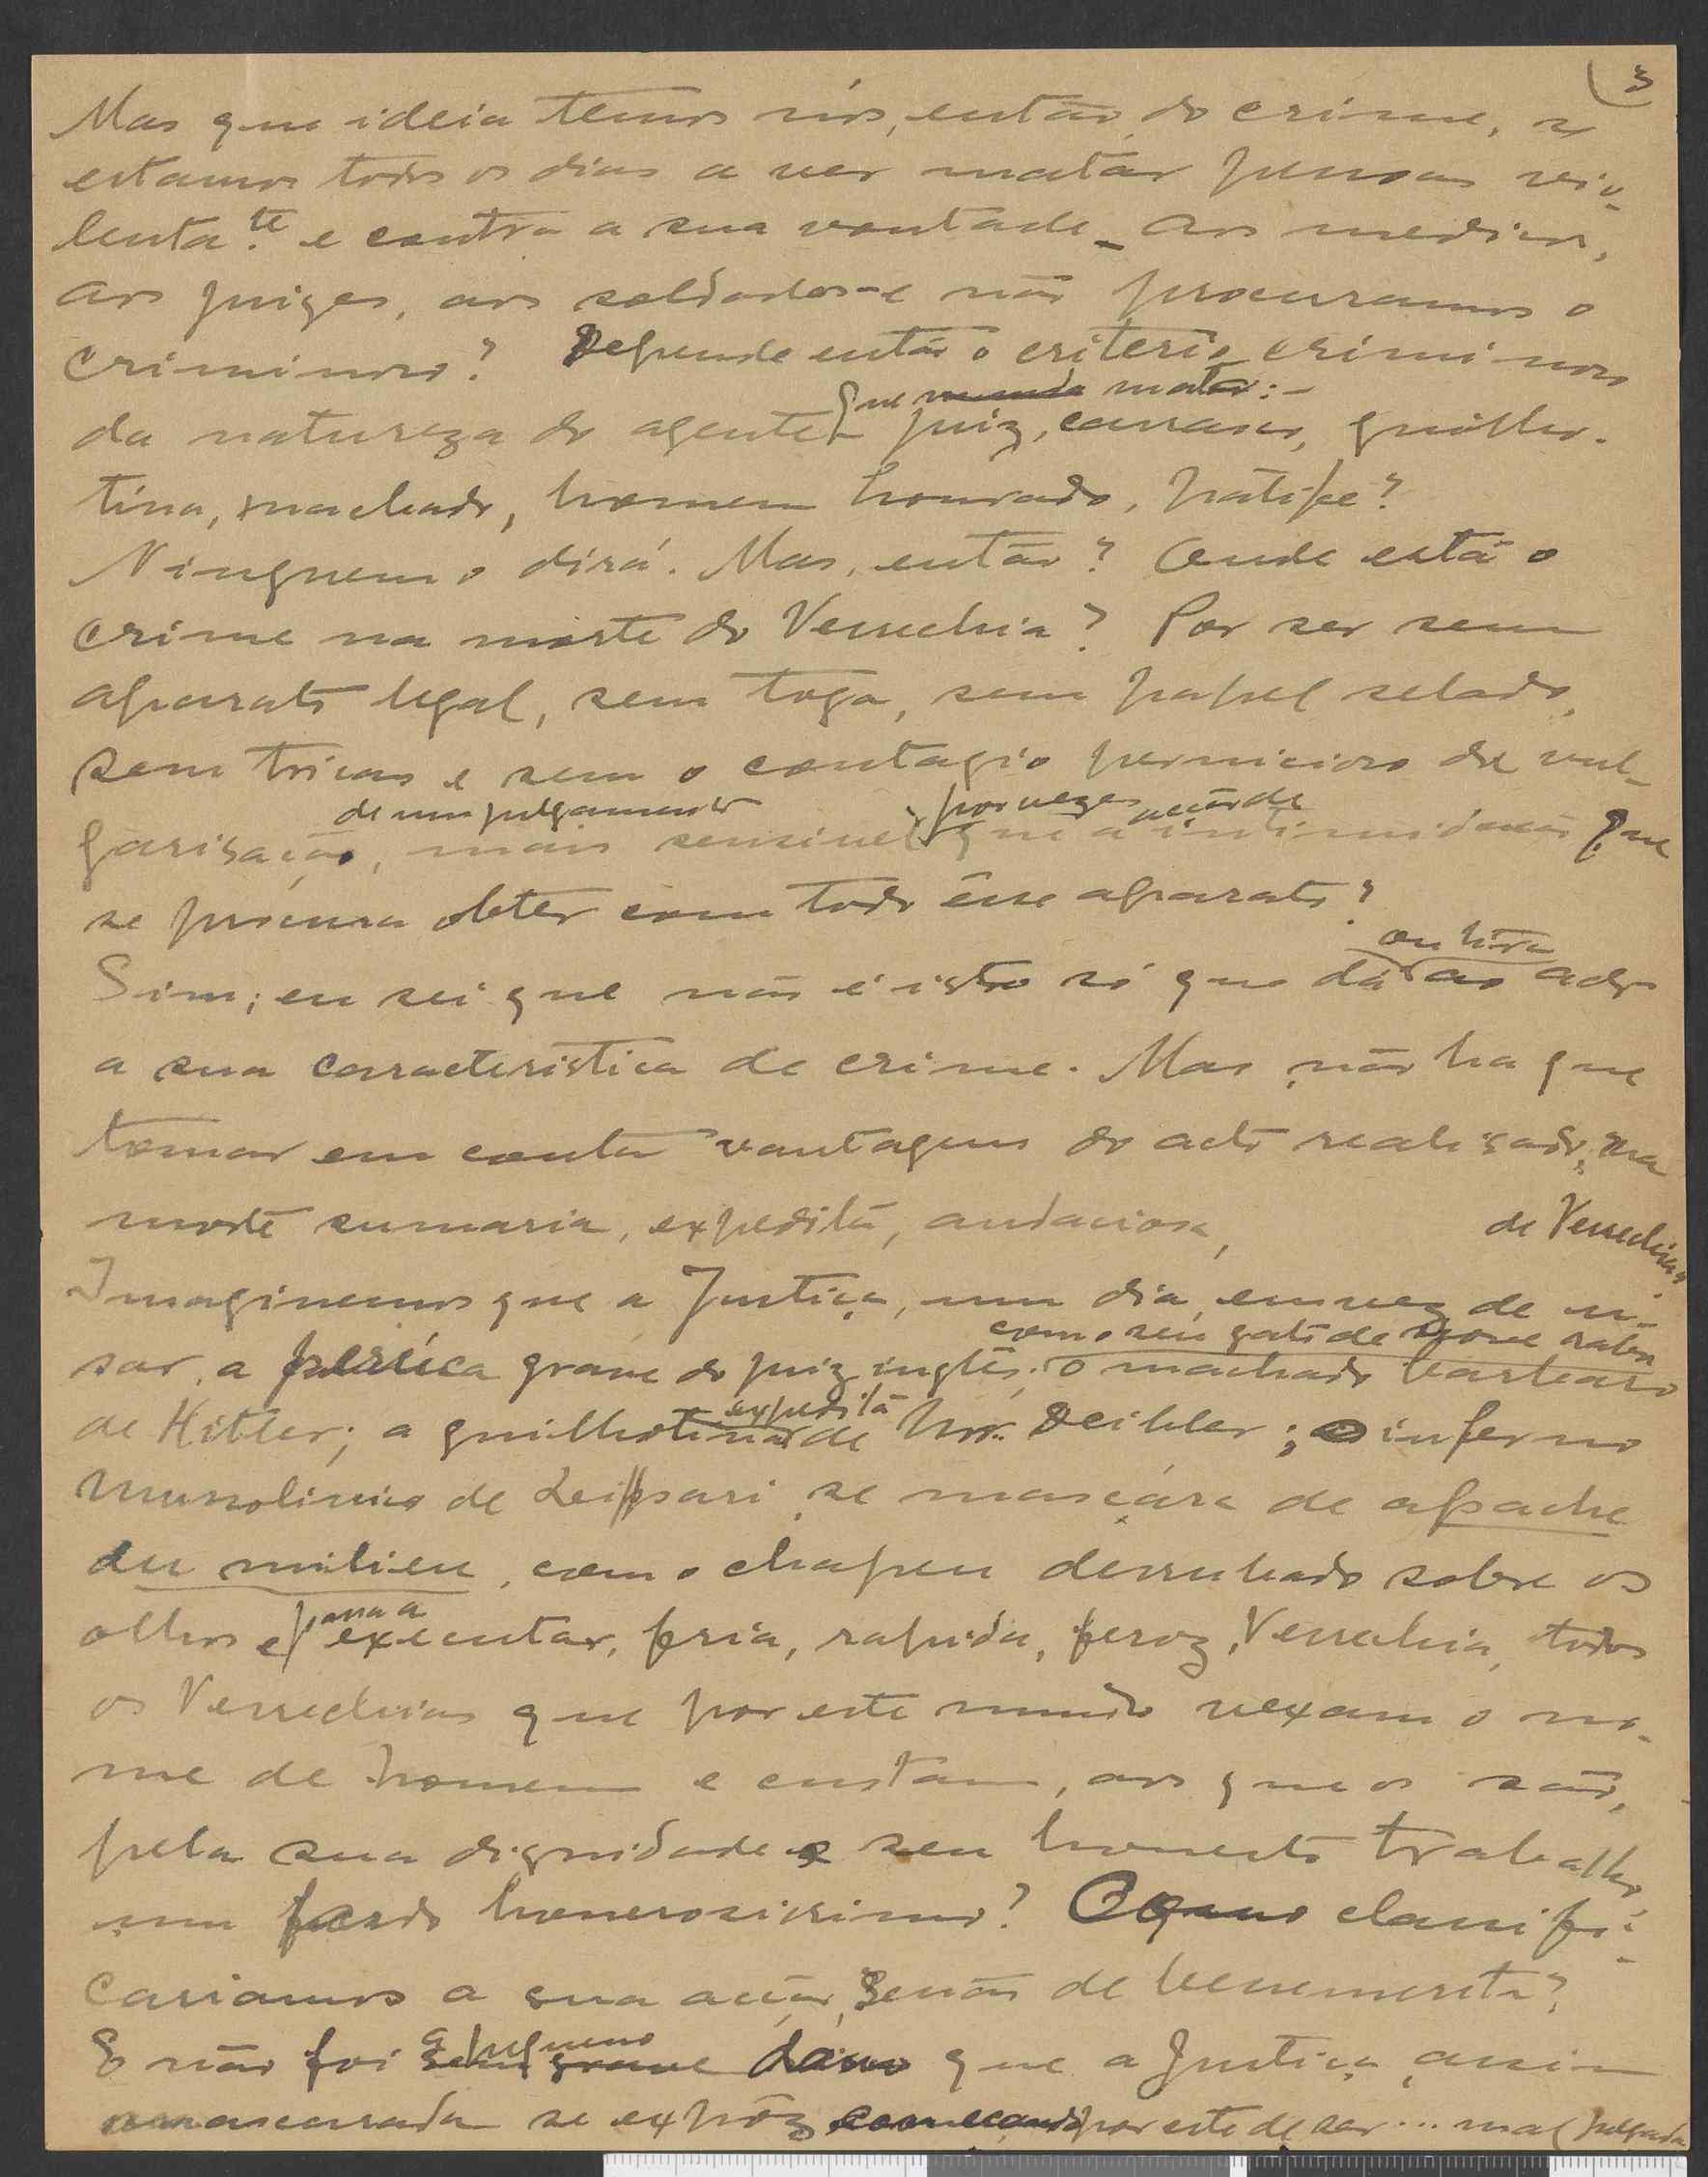 3
Mas que ideia temos nós, então, do crime, se
estamos todos os dias a ver matar pessoas vio-
lenta.te e contra a sua vontade - aos medicos,
aos juizes, aos soldados - e não procuramos o
criminoso? Depende então o criterio criminoso
que manda matar: -
da natureza do agente juiz, carrasco, guilho-
tina, machado, homem honrado, patife?
Ninguem o dirá. Mas, então? Onde está o
crime na morte do Verrechia? Por ser sem
aparato legal, sem toga, sem papel selado,
sem tricas e sem o contagio pernicioso da vul-
de um julgamento por vezes acção de
garisação, mais sensivel que a intimidação que
se procura obter com todo êsse aparato?
ou tira
Sim; eu sei que não é isto só que dá ao acto
a sua caracteristica de crime. Mas não ha que
tomar em conta vantagens do acto realisado, na
morte sumaria, expedita, audaciosa, de Verrechia?
Imaginemos que a Justiça, um dia, em vez de u-
com o seu gato de nove rabos
sar, a perúca grave do juiz inglês; o machado barbaro
expedita
de Hitler; a guilhotina de Mr. Deibler; o inferno
mussolinico de Lippari, se mascára de apache
du milieu, com o chapeu derrubado sobre os
para
olhos e executar, fria, rapida, feroz, Verrechia, todos
os Verrechias que por este mundo vexam o no-
me de homem e custam, aos que o são,
pela sua dignidade e seu honesto trabalho,
um fardo honerosissimo? Como classifi-
cariamos a sua acção, senão de benemerita?
a pequeno
E não foi sem grave dano que a Justiça, assim
mascarada se expôz começando por este de ser ... mal julgada